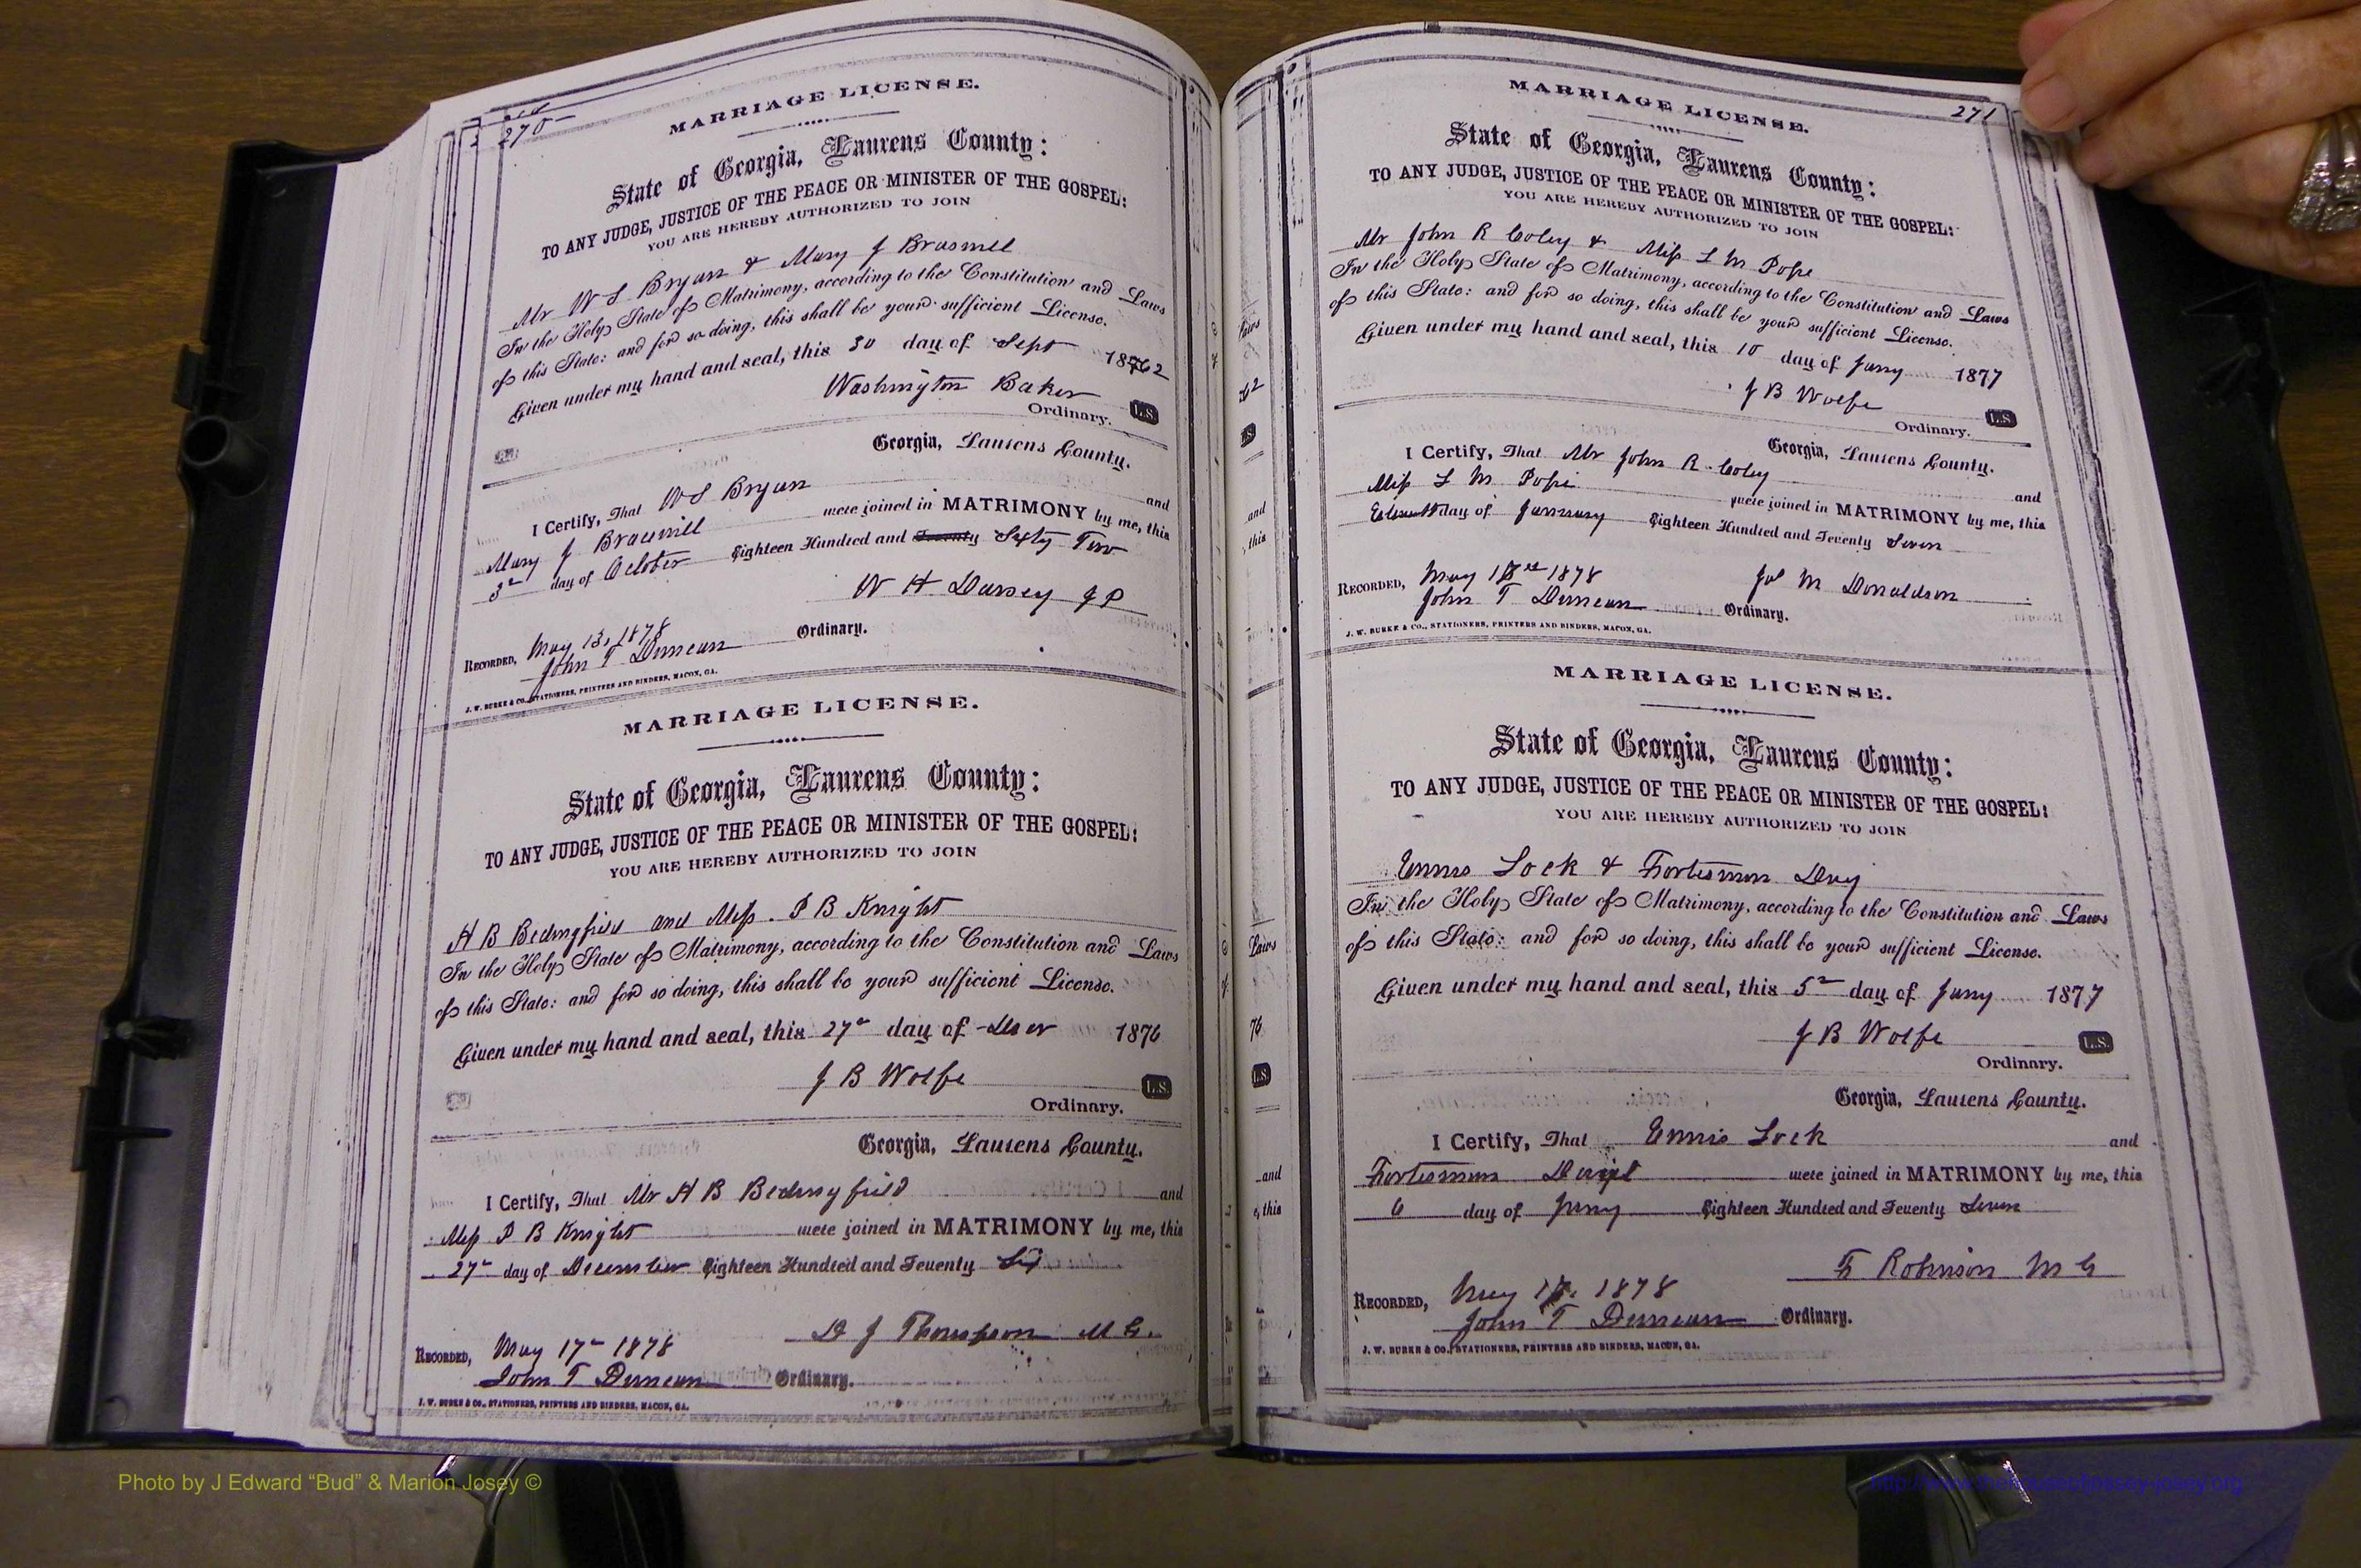 270
MARRIAGE LICENSE.
State of Georgia, Laurens County:
TO ANY JUDGE, JUSTICE OF THE PEACE OR MINISTER OF THE GOSPEL:
YOU ARE HEREBY AUTHORIZED TO JOIN
Mr W S Bryan & Mary J Braswell
In the Holy State of Matrimony, according to the Constitution and Laws
of this State: and for so doing, this shall be your sufficient License.
Given under my hand and seal, this 30 day of Sept 1862
Washington Baker
Ordinary. L.S.
Georgia, Laurens County.
I Certify, That W S Bryan and
Mary J Braswell were joined in MATRIMONY by me, this
3d day of October Eighteen Hundred and Sixty Two
W H Dorsey J P
RECORDED, May 13, 1878
John T Duncan Ordinary.
J. W. BURKE & CO., STATIONERS, PRINTERS AND BINDERS, MACON, GA.
MARRIAGE LICENSE.
State of Georgia, Laurens County:
TO ANY JUDGE, JUSTICE OF THE PEACE OR MINISTER OF THE GOSPEL:
YOU ARE HEREBY AUTHORIZED TO JOIN
H B Bedingfield and Miss P B Knight
In the Holy State of Matrimony, according to the Constitution and Laws
of this State: and for so doing, this shall be your sufficient License.
Given under my hand and seal, this 27 day of 1876
J B Wolfe
L.S.
Ordinary.
Georgia, Laurens County.
I Certify, That Mr H B Bedingfield and
Miss P B Knight were joined in MATRIMONY by me, this
27 day of December Eighteen Hundred and Seventy Six
J Thompson M G.
RECORDED, May 17 1878
John T Duncan Ordinary.
J. W. BURKE & CO., STATIONERS, PRINTERS AND BINDERS, MACON, GA.
Laws
and
this
Laws
76
L.S.
and
this
271
MARRIAGE LICENSE.
State of Georgia, Laurens County:
TO ANY JUDGE, JUSTICE OF THE PEACE OR MINISTER OF THE GOSPEL:
YOU ARE HEREBY AUTHORIZED TO JOIN
Mr John R Coley & Miss L M Pope
In the Holy State of Matrimony, according to the Constitution and Laws
of this State: and for so doing, this shall be your sufficient License.
Given under my hand and seal, this 10 day of Jany 1877
J B Wolfe
L.S.
Ordinary.
Georgia, Laurens County.
I Certify, That Mr John R. Coley and
Miss L M Pope were joined in MATRIMONY by me, this
day of January Eighteen Hundred and Seventy Seven
M Donaldson
RECORDED, May 1878
John T Duncan Ordinary.
J. W. BURKE & CO., STATIONERS, PRINTERS AND BINDERS, MACON, GA.
MARRIAGE LICENSE.
State of Georgia, Laurens County:
TO ANY JUDGE, JUSTICE OF THE PEACE OR MINISTER OF THE GOSPEL:
YOU ARE HEREBY AUTHORIZED TO JOIN
Ennis Lock &
In the Holy State of Matrimony, according to the Constitution and Laws
of this State: and for so doing, this shall be your sufficient License.
Given under my hand and seal, this 5 day of Jany 1877
J B Wolfe
L.S.
Ordinary.
Georgia, Laurens County.
I Certify, That Ennis Lock and
were joined in MATRIMONY by me, this
6 day of Jany Eighteen Hundred and Seventy Seven
Robinson M G
RECORDED, May 1878
John T Duncan Ordinary.
J. W. BURKE & CO., STATIONERS, PRINTERS AND BINDERS, MACON, GA.
Photo by J Edward “Bud” & Marion Josey ©
http://www.thehouseofjossey-josey.org